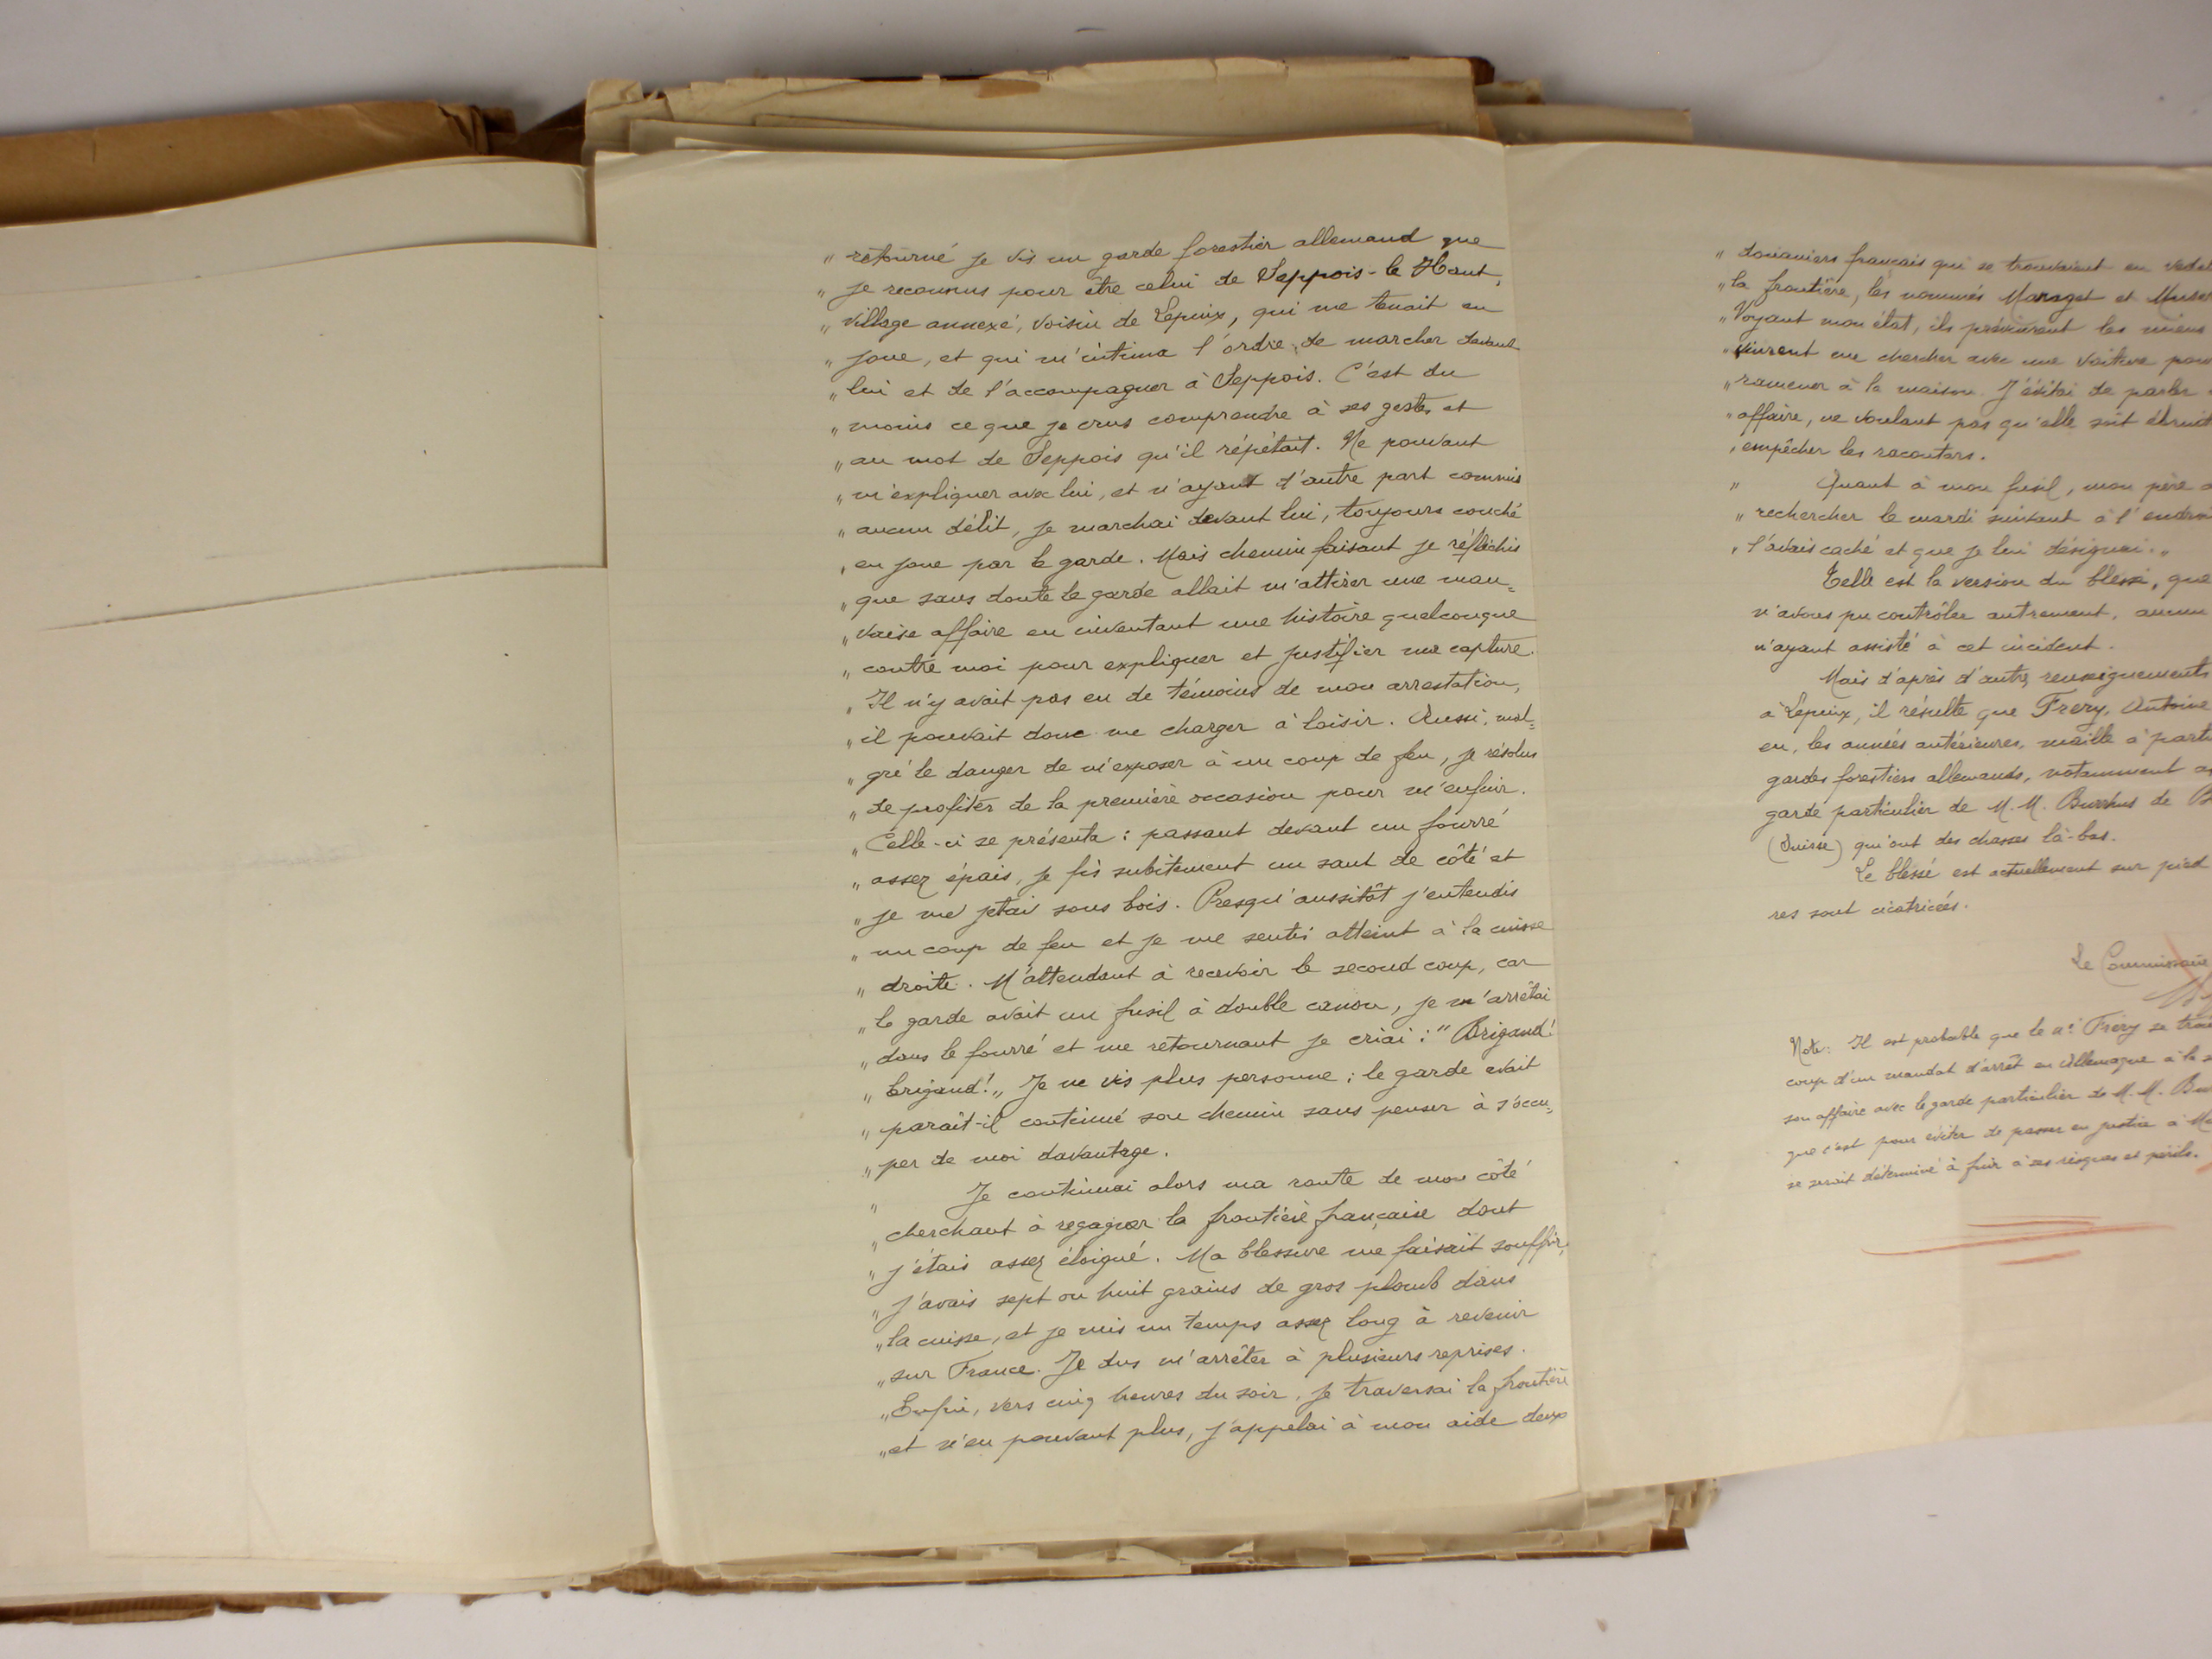 „ retourné je vis un garde forestier allemand que
„ je reconnus pour être celui de Seppois-le Haut,
„ village annexé, voisin de Lepuix, qui me tenait en
„ joue, et qui m'intima l'ordre de marcher devant
„ lui et de l'accompagner à Seppois. C'est du
„ moins ce que je crus comprendre à ses gestes et
„ au mot de Seppois qu'il répétait. Ne pouvant
„ m'expliquer avec lui, et n'ayant d'autre part commis
„ aucun délit, je marchai devant lui, toujours couché
„ en joue par le garde. Mais chemin faisant je réfléchis
„ que sans doute le garde allait m'attirer une mau-
„ vaise affaire en inventant une histoire quelconque
„ contre moi pour expliquer et justifier ma capture.
„ Il n'y avait pas eu de témoins de mon arrestation,
„ il pouvait donc me charger à loisir. Aussi, mal-
„ gré le danger de m'exposer à un coup de feu, je résolus
„ de profiter de la première occasion pour m'enfuir.
„ Celle-ci se présenta : passant devant un fourré
„ assez épais, je fis subitement un saut de côté et
„ je me jetai sous bois. Presqu'aussitôt j'entendis
„ un coup de feu et je me sentis atteint à la cuisse
„ droite. M'attendant à recevoir le second coup, car
„ le garde avait un fusil à double canon, je m'arrêtai
„ dans le fourré et me retournant je criai : " Brigand !
„ brigand ! „ Je ne vis plus personne ; le garde avait
„ paraît-il continué son chemin sans penser à s'occu-
„ per de moi davantage.
„ Je continuai alors ma route de mon côté
„ cherchant à regagner la frontière française dont
„ j'étais assez éloigné. Ma blessure me faisait souffrir,
„ j'avais sept ou huit grains de gros plomb dans
„ la cuisse, et je mis un temps assez long à revenir
„ sur France. Je dus m'arrêter à plusieurs reprises.
„ Enfin, vers cinq heures du soir, je traversai la frontière
„ et n'en pouvant plus, j'appelai à mon aide deux
„ douaniers français qui se trouvaient en
„ la frontière, les nommés Maraget et
„ Voyant mon état, ils prévinrent les miens
„ vinrent me chercher avec une voiture pour
„ ramener à la maison. J'évitai de parler
„ affaire, ne voulant pas qu'elle soit
„ empêcher les racontars.
„ Quant à mon fusil, mon père
„ rechercher le mardi suivant à l'
„ l'avais caché et que je lui désignai. „
Telle est la version du blessé, que
n'avons pu contrôler autrement, aucun
n'ayant assisté à cet incident.
Mais d'après d'autres renseignements
à Lepuix, il résulte que Frery, Antoine
eu, les années antérieures, maille à
gardes forestiers allemands, notamment
garde particulier de M. M. Burrhus de
(Suisse) qui ont des chasses là-bas.
Le blessé est actuellement sur pied
res sont cicatricées.
Le Commissaire
Note : Il est probable que le né Frery se
coup d'un mandat d'arrêt en Allemagne à la
son affaire avec le garde particulier de M. M.
que c'est pour éviter de passer en justice à
se serait déterminé à fuir à ses risques et périls.